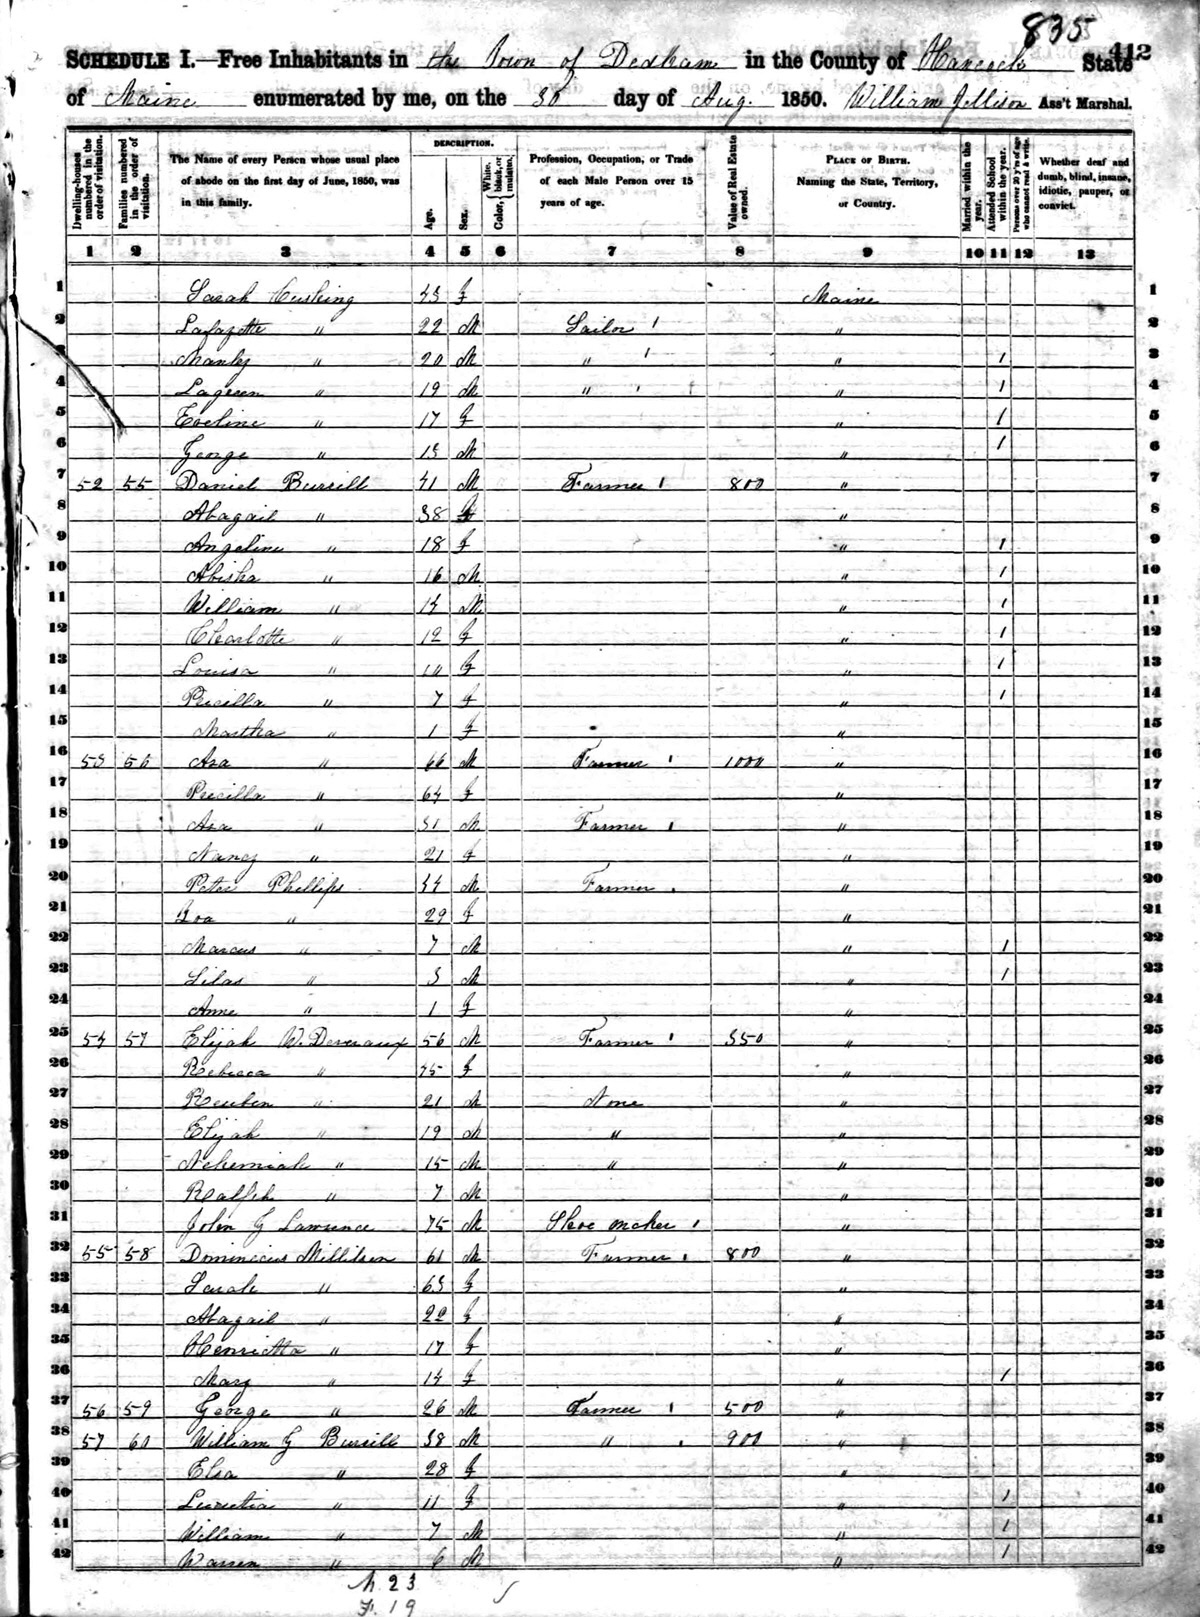 835
412
SCHEDULE I.—Free Inhabitants in the Town of Dedham in the County of Hancock State
of Maine enumerated by me, on the 30 day of Aug. 1850. William Jellison Ass't Marshal.
Dwelling-houses numbered in the order of visitation.
Families numbered in the order of visitation.
The Name of every Person whose usual place of abode on the first day of June, 1850, was in this family.
DESCRIPTION.
Age.
Sex.
Color, White, black, or mulatto.
Profession, Occupation, or Trade of each Male Person over 15 years of age.
Value of Real Estate owned.
PLACE OF BIRTH. Naming the State, Territory, or Country.
Married within the year.
Attended School within the year.
Persons over 20 y'rs of age who cannot read & write.
Whether deaf and dumb, blind, insane, idiotic, pauper, or convict.
1 2 3 4 5 6 7 8 9 10 11 12 13
1 Sarah Cushing 43 f Maine 1
2 Lafayette " 22 M Sailor 1 " 2
3 Manly " 20 M " 1 " 1 3
4 " 19 M " 1 " 1 4
5 Eveline " 17 f " 1 5
6 George " 15 M " 1 6
7 52 55 Daniel Burrill 41 M Farmer 1 800 " 7
8 Abagail " 38 f " 8
9 Angeline " 18 f " 1 9
10 Abisha " 16 M " 1 10
11 William " 14 M " 1 11
12 Charlotte " 12 f " 1 12
13 Louisa " 10 f " 1 13
14 Precilla " 7 f " 1 14
15 Martha " 1 f " 15
16 53 56 Asa " 66 M Farmer 1 1000 " 16
17 Precilla " 64 f " 17
18 Asa " 31 M Farmer 1 " 18
19 Nancy " 21 f " 19
20 Peter Phillips 34 M Farmer " 20
21 Zoa " 29 f " 21
22 Marcus " 7 M " 1 22
23 Silas " 5 M " 1 23
24 Anne " 1 f " 24
25 54 57 Elijah W. Deveraux 56 M Farmer 1 350 " 25
26 Rebecca " 45 f " 26
27 Reuben " 21 M None " 27
28 Elijah " 19 M " " 28
29 Nehemiah " 15 M " " 29
30 Ralph " 7 M " 30
31 John G Lawrence 75 M Shoe maker 1 " 31
32 55 58 Dominicus Millikin 61 M Farmer 1 800 " 32
33 Sarah " 63 f " 33
34 Abagail " 22 f " 34
35 Henrietta " 17 f " 35
36 Mary " 14 f " 1 36
37 56 59 George " 26 M Farmer 1 500 " 37
38 57 60 William G Burrill 38 M " 1 900 " 38
39 Elsa " 28 f " 39
40 Lucretia " 11 f " 1 40
41 William " 7 M " 1 41
42 Warren " 6 M " 1 42
M. 23
F. 19